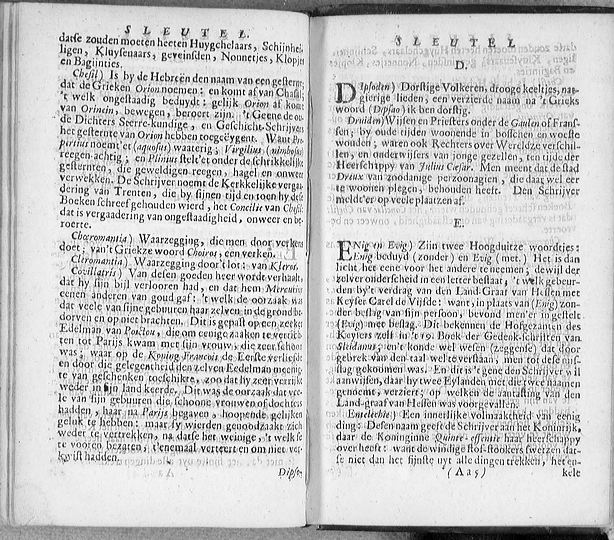 SLEUTEL.
datse zouden moeten heeten Huygchelaars, Schijnhei-
ligen, Kluysenaars, geveinsden, Nonnetjes, Klopjes
en Bagijnties.
Chesil) Is by de Hebreën den naam van een gesternt,
dat de Grieken Orion noemen: en komt af van Chasil:
't welk ongestaadig beduydt: gelijk Orion af komt
van Orinein, bewegen, beroert zijn. 't Geene de ou-
de Dichters Sterre-kundige, en Geschicht-Schrijvers
het gesternte van Orion hebben toegeëygent. Want Pro-
pertius noemt'et (aquosus) waaterig; Virgilius (nimbosus)
reegen-achtig; en Plinius stelt'et onder de schrikkelijke
gesternten, die geweldigen reegen, hagel en onweer
verwekken. De Schrijver noemt de Kerkkelijke verga-
dering van Trenten, die by sijnen tijd en toen hy dese
Boeken schreef gehouden wierd, het Concilie van Chesil:
dat is vergaadering van ongestaadigheid, onweer en be-
roerte.
Choeromantia) Waarzegging, die men door verkens
doet; van't Griekze woord Choiros, een verken.
Cleromantia) Waarzegging door 't lot: van Kleros.
Covillatris) Van desen goeden heer wordt verhaalt,
dat hy sijn bijl verlooren had, en dat hem Mercurius
eenen anderen van goud gaf: 't welk de oorzaak was
dat veele van sijne gebuuren haar zelven in de grond be-
dorven en op niet brachten. Dit is gepast op een zeeker
Edelman van Poictou, die om eenige zaaken te verrich-
ten tot Parijs kwam met sijn vrouw, die zeer schoon
was; waar op de Koning Francois de Eerste verliefde
en door die gelegentheid den zelven Eedelman meenig-
te van geschenken toeschikte, zoo dat hy zeer verrijkt
weder in sijn land keerde. Dit was de oorzaak dat vee-
le van sijn gebuuren die schoone vrouwen of dochters
hadden, haar na Parijs begaven, hoopende gelijken
geluk te hebben: maar sy wierden genoodzaakt zich
weder te vertrekken, na datse het weinige, 't welk se
te vooren bezaten, t'enemaal verteert en om niet ver-
kwist hadden.
Dipso-
SLEUTEL
D.
DIpsoden) Dorstige Volkeren, drooge keeltjes, na-
gierige lieden, een verzierde naam na 't Grieks
woord (Dipsao) ik ben dorstig.
Druiden) Wijsen en Priesters onder de Gaulen of Fran-
sen, by oude tijden woonende in bosschen en woeste
wouden; waren ook Rechters over Wereldze verschil-
len, en onderwijsers van jonge gezellen, ten tijde der
Heerschappy van Julius Caesar. Men meent dat de stad
Dreux van znodanige perzoonagien, die daag wel eer
te woonen plegen, behouden heeft. Den Schrijver
meldt'er op veele plaatzen af.
E.
ENig en Evig) Zijn twee Hoogduitze woordtjes:
Enig beduyd (zonder) en Evig (met.) Het is dan
licht het eene voor het andere te neemen; dewijl der
zelver onderscheid in een letter bestaat; 't welk gebeur-
den by't verdrag van den Land Graaf van Hessen met
Keyser Carel de Vijfde: want, in plaats van (Enig) zon-
der beslag van sijn persoon, bevond men'er in gestelt
(Evig) met beslag. Dit bekennen de Hofgezanten des
Keyzers zelf in 't 19. Boek der Gedenk-schriften van
Sleidanus; en't konde wel wesen (zeggense) dat door
gebrek van den taal wel te verstaan, men tot dese mis-
slag gekoomen was. En dit is 't gene den Schrijver wil
aanwijsen, daar hy twee Eylanden met die twee naamen
genoemt, verziert; op welken de aantasting van den
Land-graaf van Hessen was voorgevallen.
Entelichie) Een innerlijke volmaaktheid van eenig
ding: Desen naam geeft de Schrijver aan het Koninrijk,
daar de Koninginne Quinte-essentie haar heerschappy
over heeft: want de windige stof-stookers swetzen dat-
se niet dan het fijnste uyt alle dingen trekken, het en-
(Aa 5)
kele